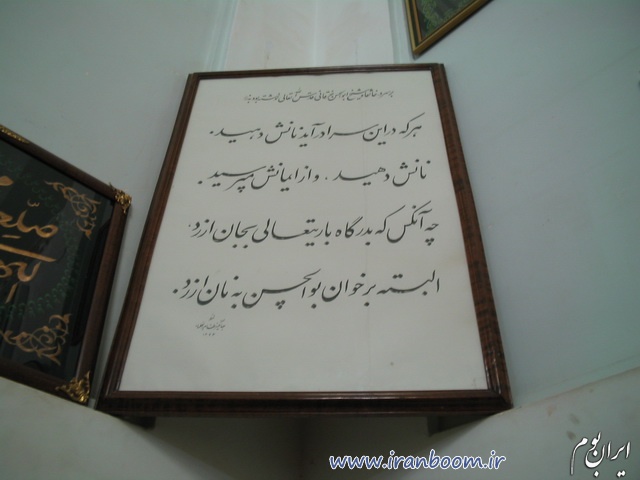 هر که در این سرا درآید نانش دهید.
نانش دهید، و از ایمانش مپرسید.
چه آنکس که بدرگاه باریتعالی بجان ارزد،
البته بر خوان بوالحسن به نان ارزد.
www.iranboom.ir
ایران بوم